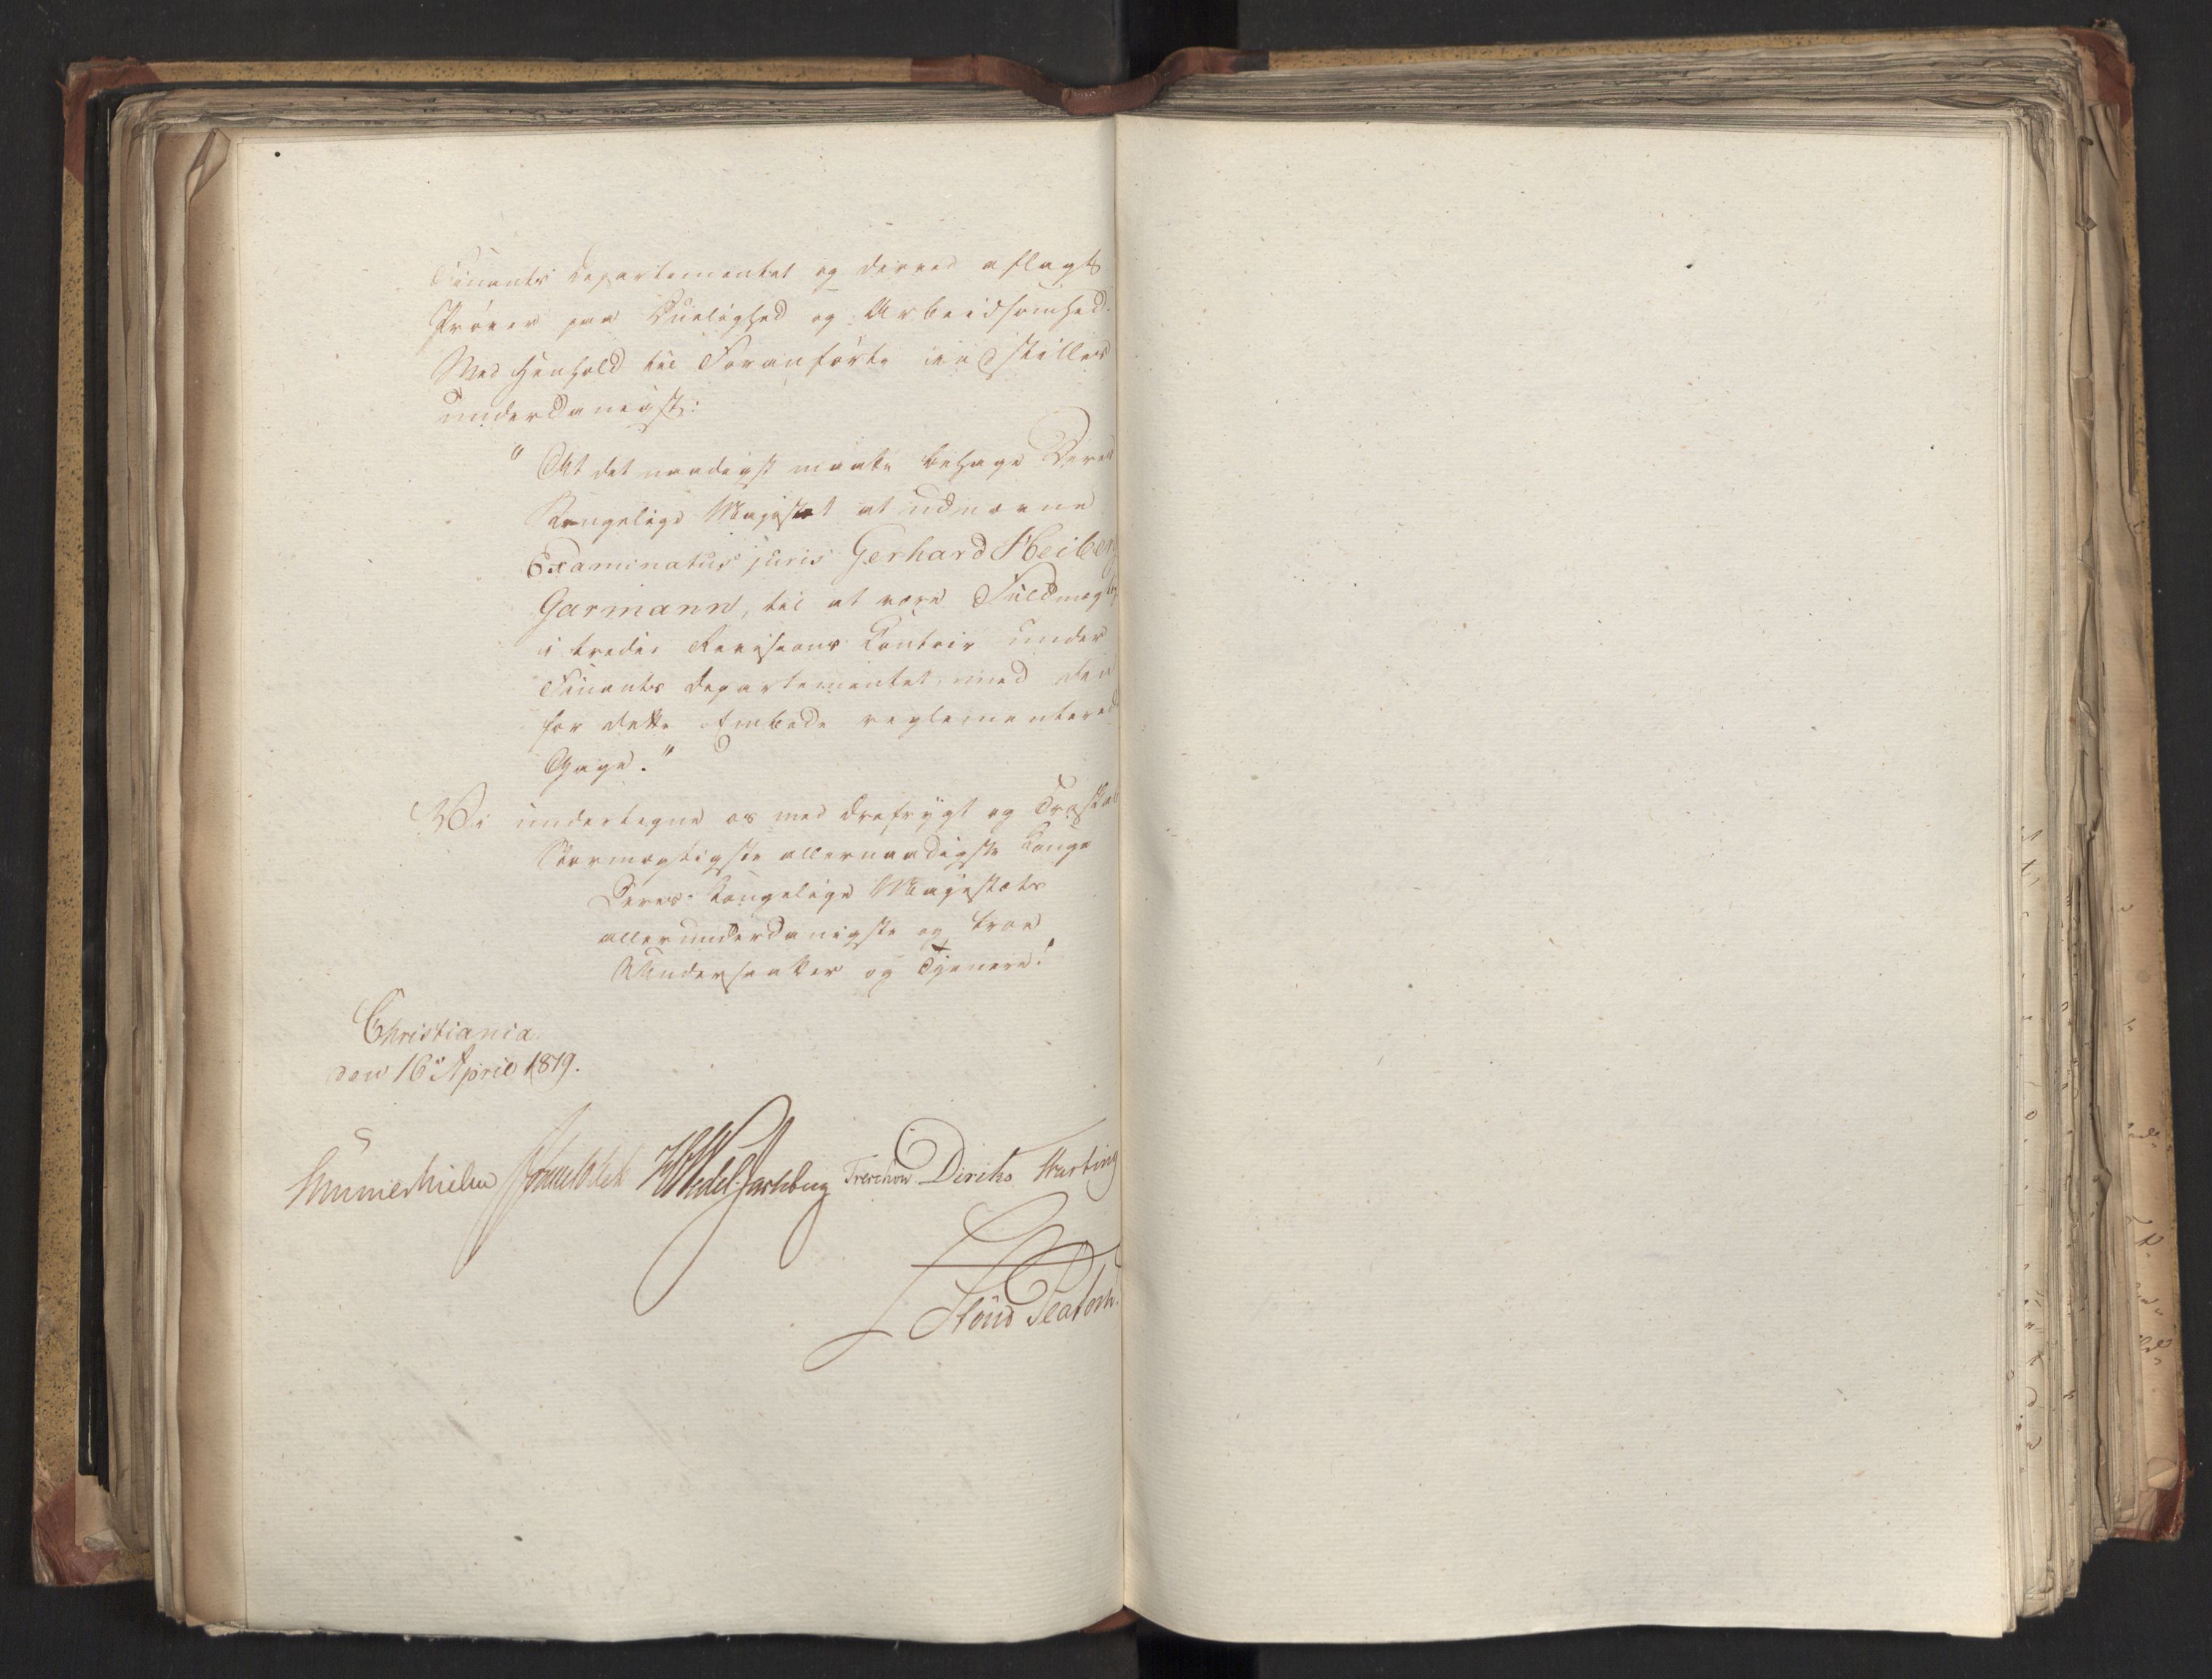 Finants Departementet og derved aflagt
Prøver paa Duelighed og Arbeidsomhed.
Med Henhold til Foranførte indstilles
underdanigst:
"At det naadigst maatte behage Deres
Kongelige Majestæt at udnævne
Examinatus juris Gerhard Heiberg
Garmann, til at være Fuldmægtig
i tredie Revisions Contoir under
Finants Departementet, med den
for dette Embede reglementerede
Gage."
Vi undertegne os med Ærefrygt og Troskab
Stormægtigste allernaadigste Konge
Deres Kongelige Majestæts
allerunderdanigste og troe
Undersaatter og Tjenere.
Christiania
den 16de April 1819.
Hummerhielm Sommerhielm HWedel Jarlsberg Treschow Diriks Hasting